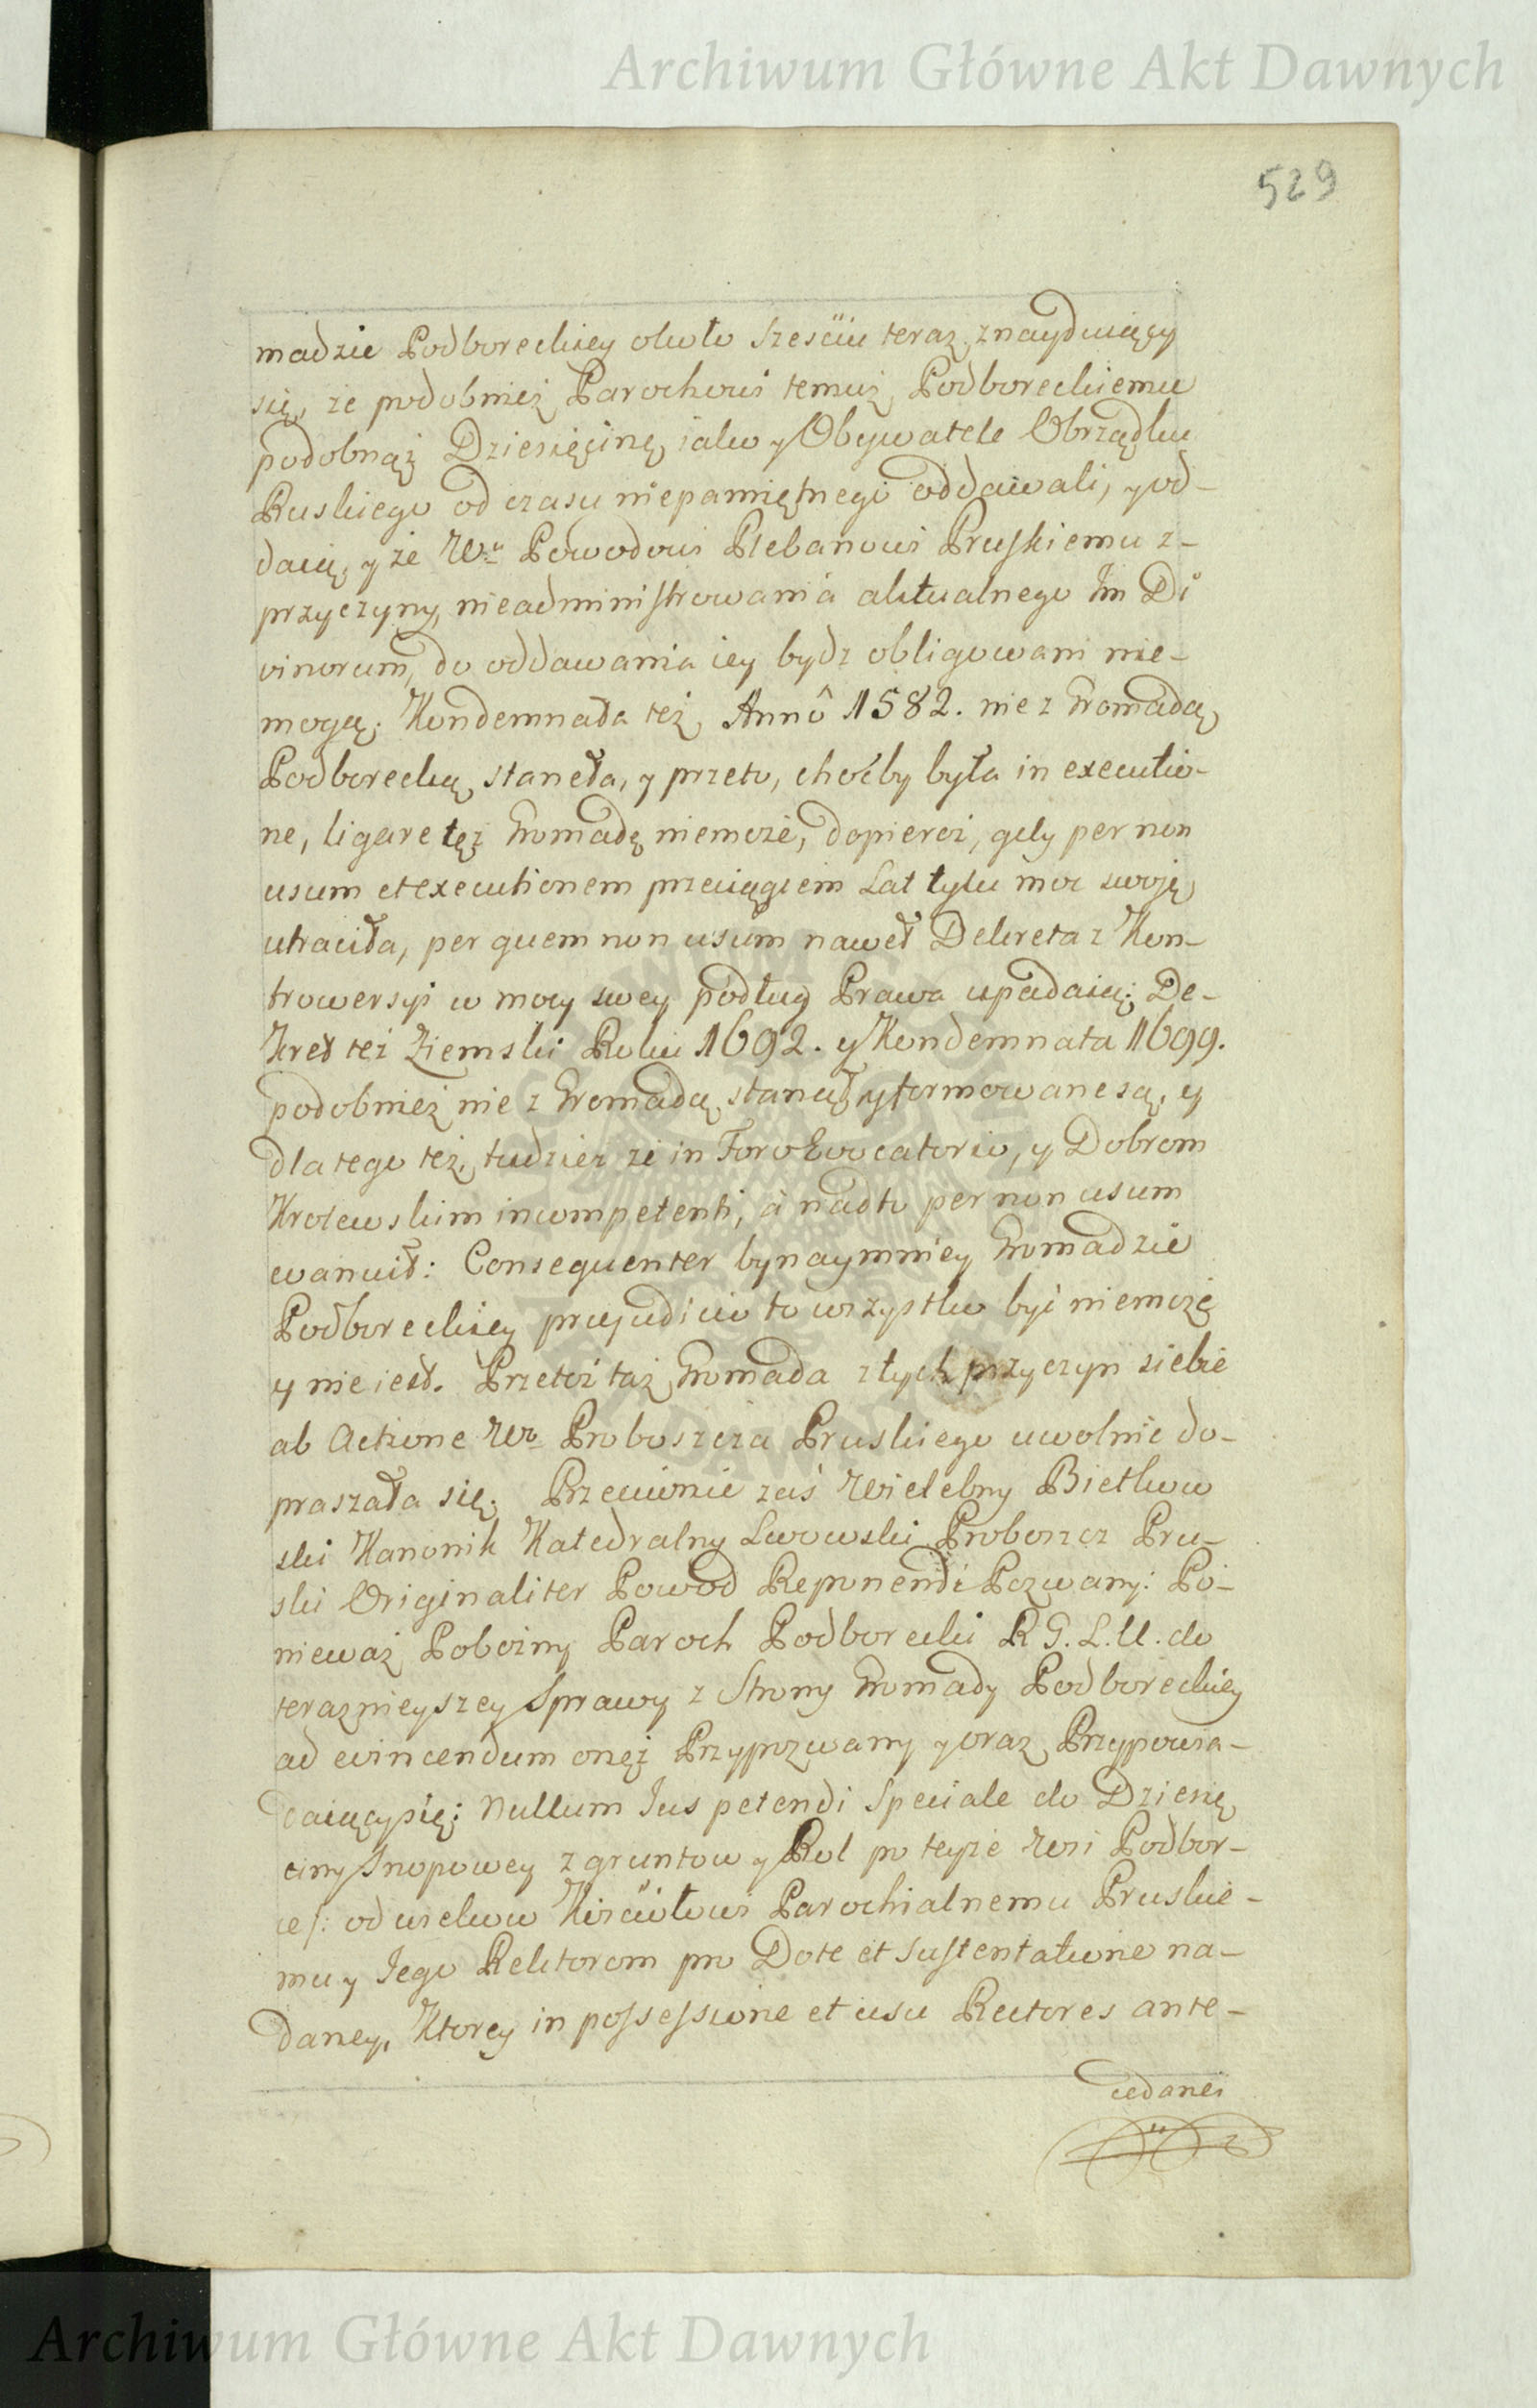 Archiwum Główne Akt Dawnych
529
madzie Podboreckiey około sześciu teraz znayduiący
się, że podobnież Parochowi temuż Podboreckiemu
podobnąż Dziesięcinę iako y Obywatele Obrządku
Ruskiego od czasu niepamiętnego oddawali, y od-
daią, y że Wu Powodowi Plebanowi Pruskiemu z-
przyczyny nieadministrowania aktualnego Im Di
vinorum, do oddawania iey bydz obligowani nie-
mogą. Kondemnata też Annô 1582. nie z Gromadą
Podborecką staneła, y przeto, choćby była in executio-
ne, ligare tęż Gromadę niemoże, dopieroż, gdy per non
usum et executionem przeciągiem Lat tylu moc swoię
utraciła, per quem non usum nawet Dekreta z Kon-
trowersyi w mocy swey podług Prawa upadaią; De-
kret też Ziemski Roku 1692. y Kondemnata 1699.
podobnież nie z Gromadą stanął y formowane są, y
dla tego też, tudzież że in Foro Evocatorio, y Dobrom
Krolewskim incompetenti, à nadto per non usum
ewanuit: Consequenter bynaymniey Gromadzie
Podboreckiey prejudicio to wszystko być niemoże
y nie iest. Przetoż taż Gromada z tych przyczyn siebie
ab Actione Wo Proboszcza Pruskiego uwolnić do-
praszała się. Przeciwnie zaś Wielebny Bietkow
ski Kanonik Katedralny Lwowski Proboszcz Pru-
ski Originaliter Powod Reponendi Pozwany: Po-
nieważ Pobożny Paroch Podborecki R G. L. U. do
teraznieyszey Sprawy z Strony Gromady Podboreckiey
ad evincendum onęż Przypozwany y oraz Przypowia-
daiący się: Nullum Jus petendi Speciale do Dziesię
ciny Snopowey z gruntow y Rol po teyże Wsi Podbor-
ce/: od wiekow Kościołowi Parochialnemu Pruskie-
mu y Jego Rektorom pro Dote et Sustentatione na-
daney, Ktorey in possessione et usu Rectores ante-
cedanei
Archiwum Główne Akt Dawnych